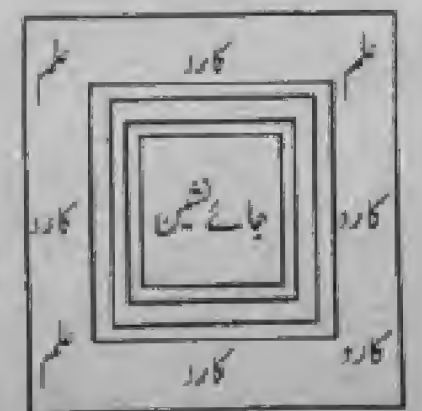 علم کارد علم
کارد جائے نشین کارد
کارد کارد علم